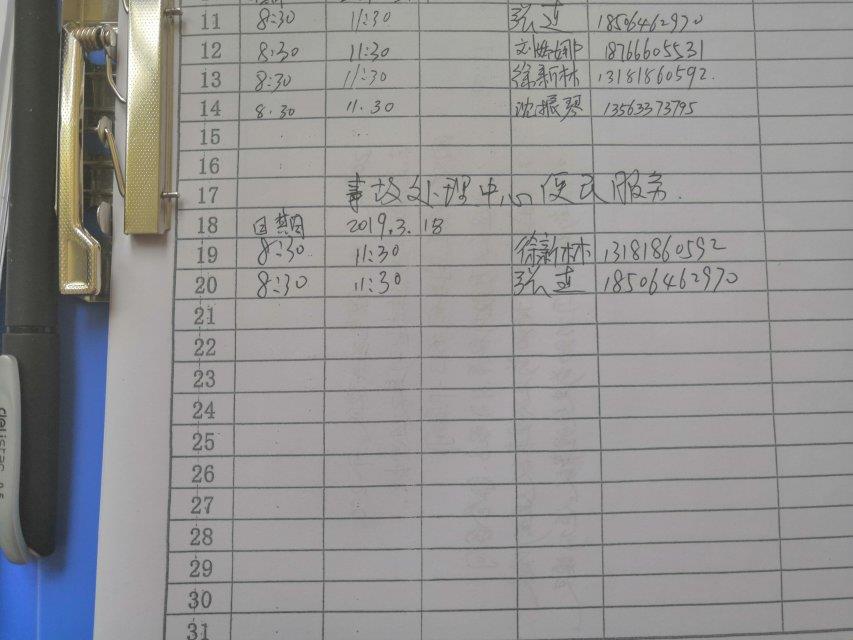 11 8:30 11:30 张莲 18506462970
12 8:30 11:30 刘娜娜 18766605531
13 8:30 11:30 徐新林 13181860592.
14 8.30 11.30 沈振琴 13563373795
15
16
17 事故处理中心便民服务.
18 日期 2019.3.18
19 8:30 11:30 徐新林 13181860592
20 8:30 11:30 张莲 18506462970
21
22
23
24
25
26
27
28
29
30
31
deli